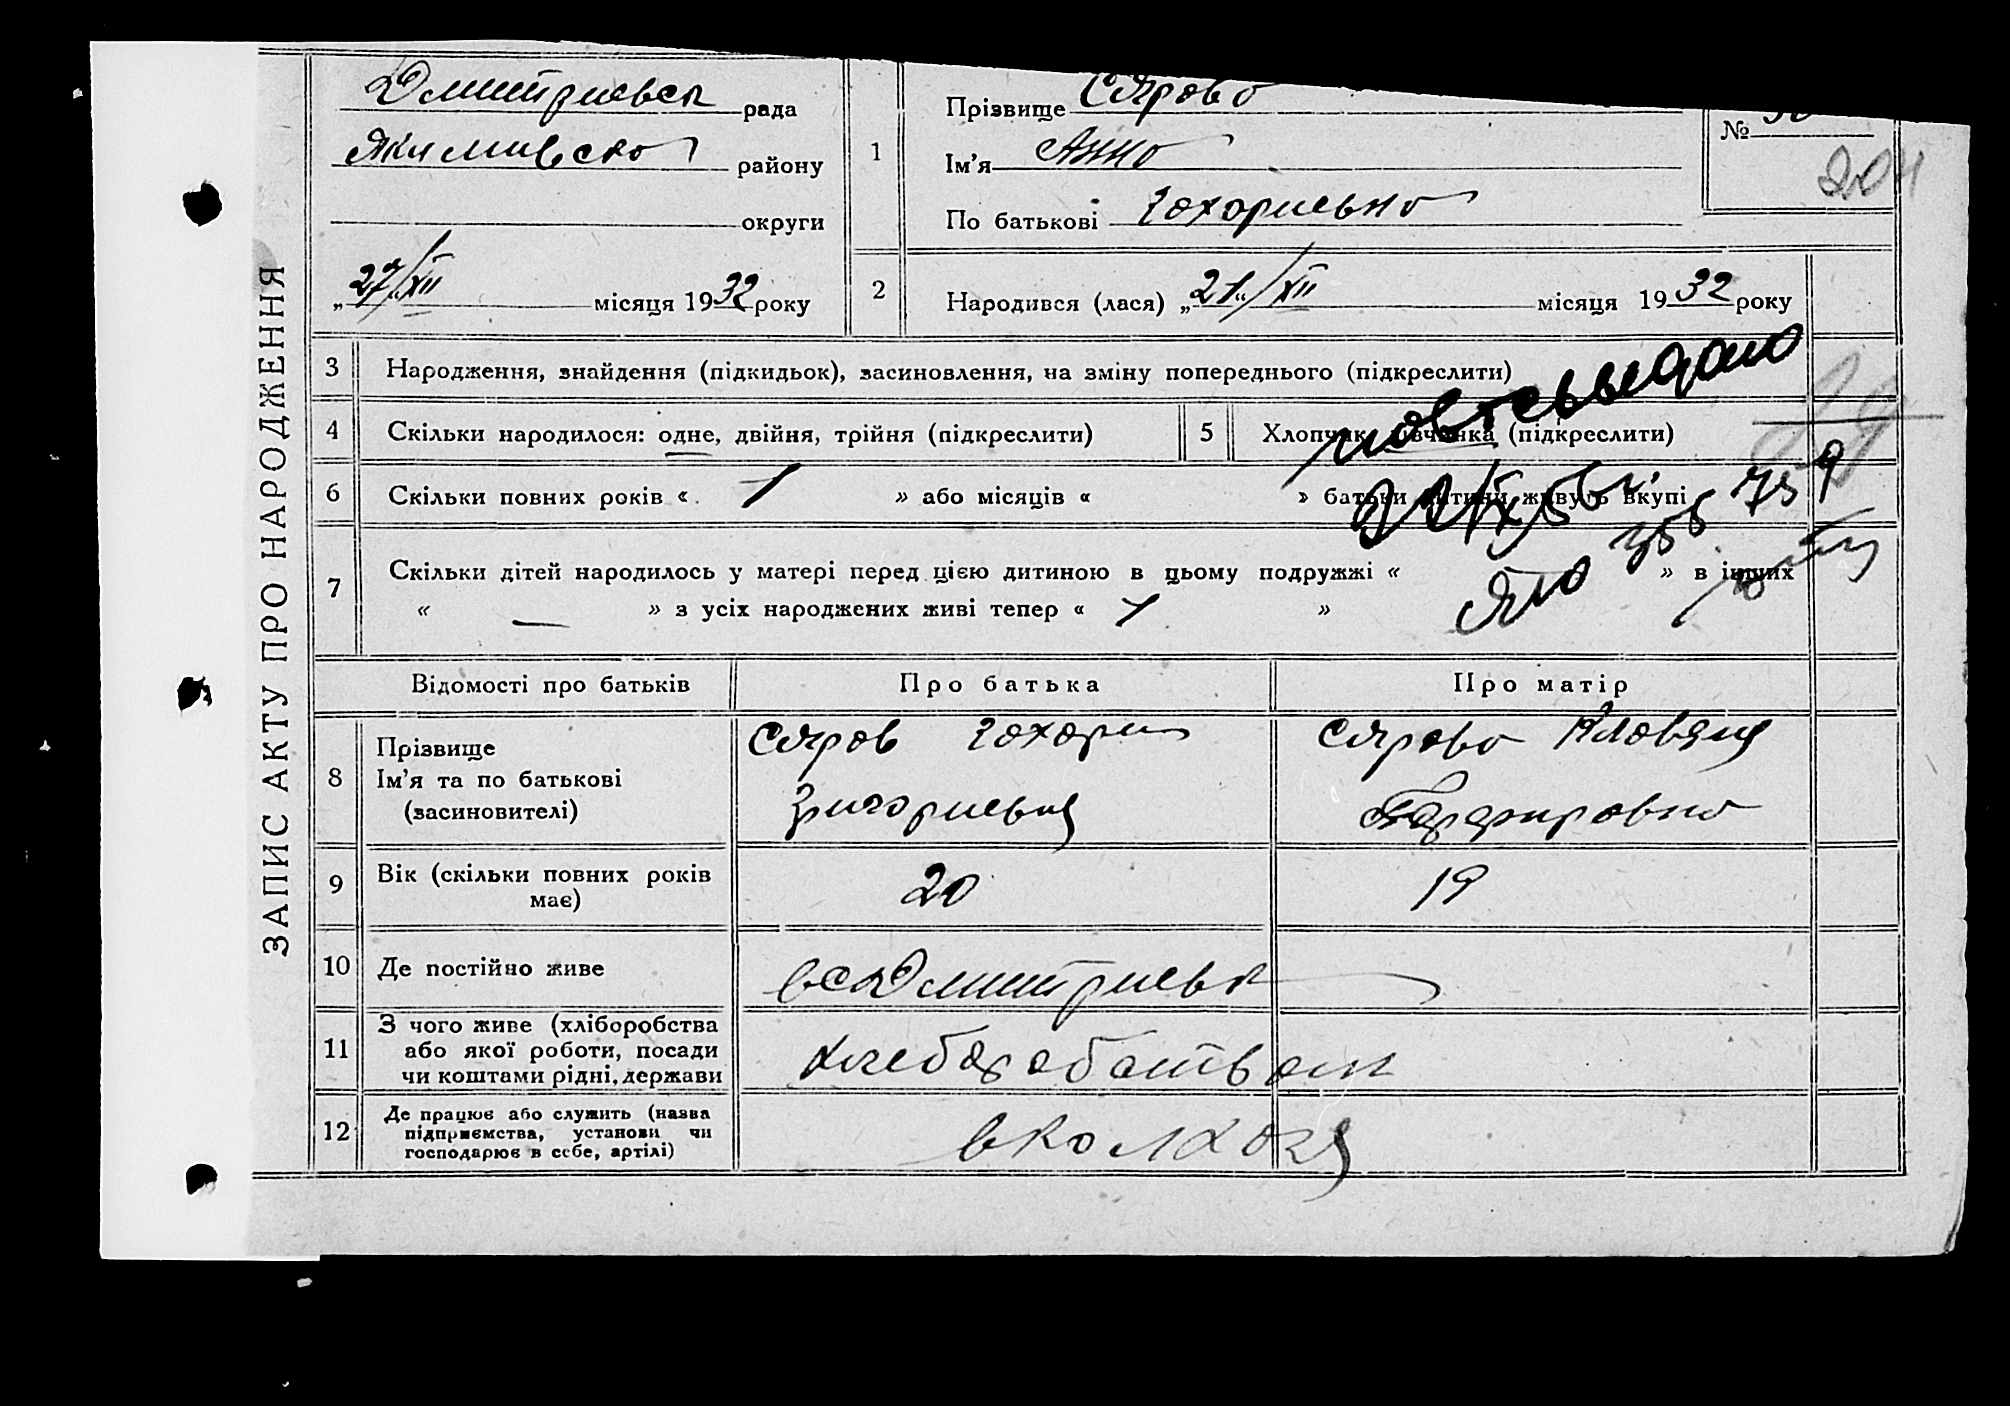 ЗАПИС АКТУ ПРО НАРОДЖЕННЯ
Дмитриевск рада
Якимивско району
округи
„27/XII місяця 1932 року
1
Прізвище Сярово
Ім'я Анно
По батькові Гохориевно
№
204
2
Народився (лася) „21"/XII місяця 1932 року
3 Народження, знайдення (підкидьок), засиновлення, на зміну попереднього (підкреслити)
4 Скільки народилося: одне, двійня, трійня (підкреслити)
5 Хлопчик, дівчинка (підкреслити)
6 Скільки повних років « 1 » або місяців « » батьки дитини живуть вкупі
7 Скільки дітей народилось у матері перед цією дитиною в цьому подружжі « » в інших
« — » з усіх народжених живі тепер « 1 »
Відомості про батьків Про батька Про матір
8 Прізвище
Ім'я та по батькові
(засиновителі)
Сяров Гохори
Григориевич
Сярово
9 Вік (скільки повних років має) 20 19
10 Де постійно живе
всДмитриевк
11 З чого живе (хліборобства
або якої роботи, посади
чи коштами рідні, держави
хлеборобством
12 Де працює або служить (назва
підприємства, установи чи
господарює в себе, артілі)
вколхозі